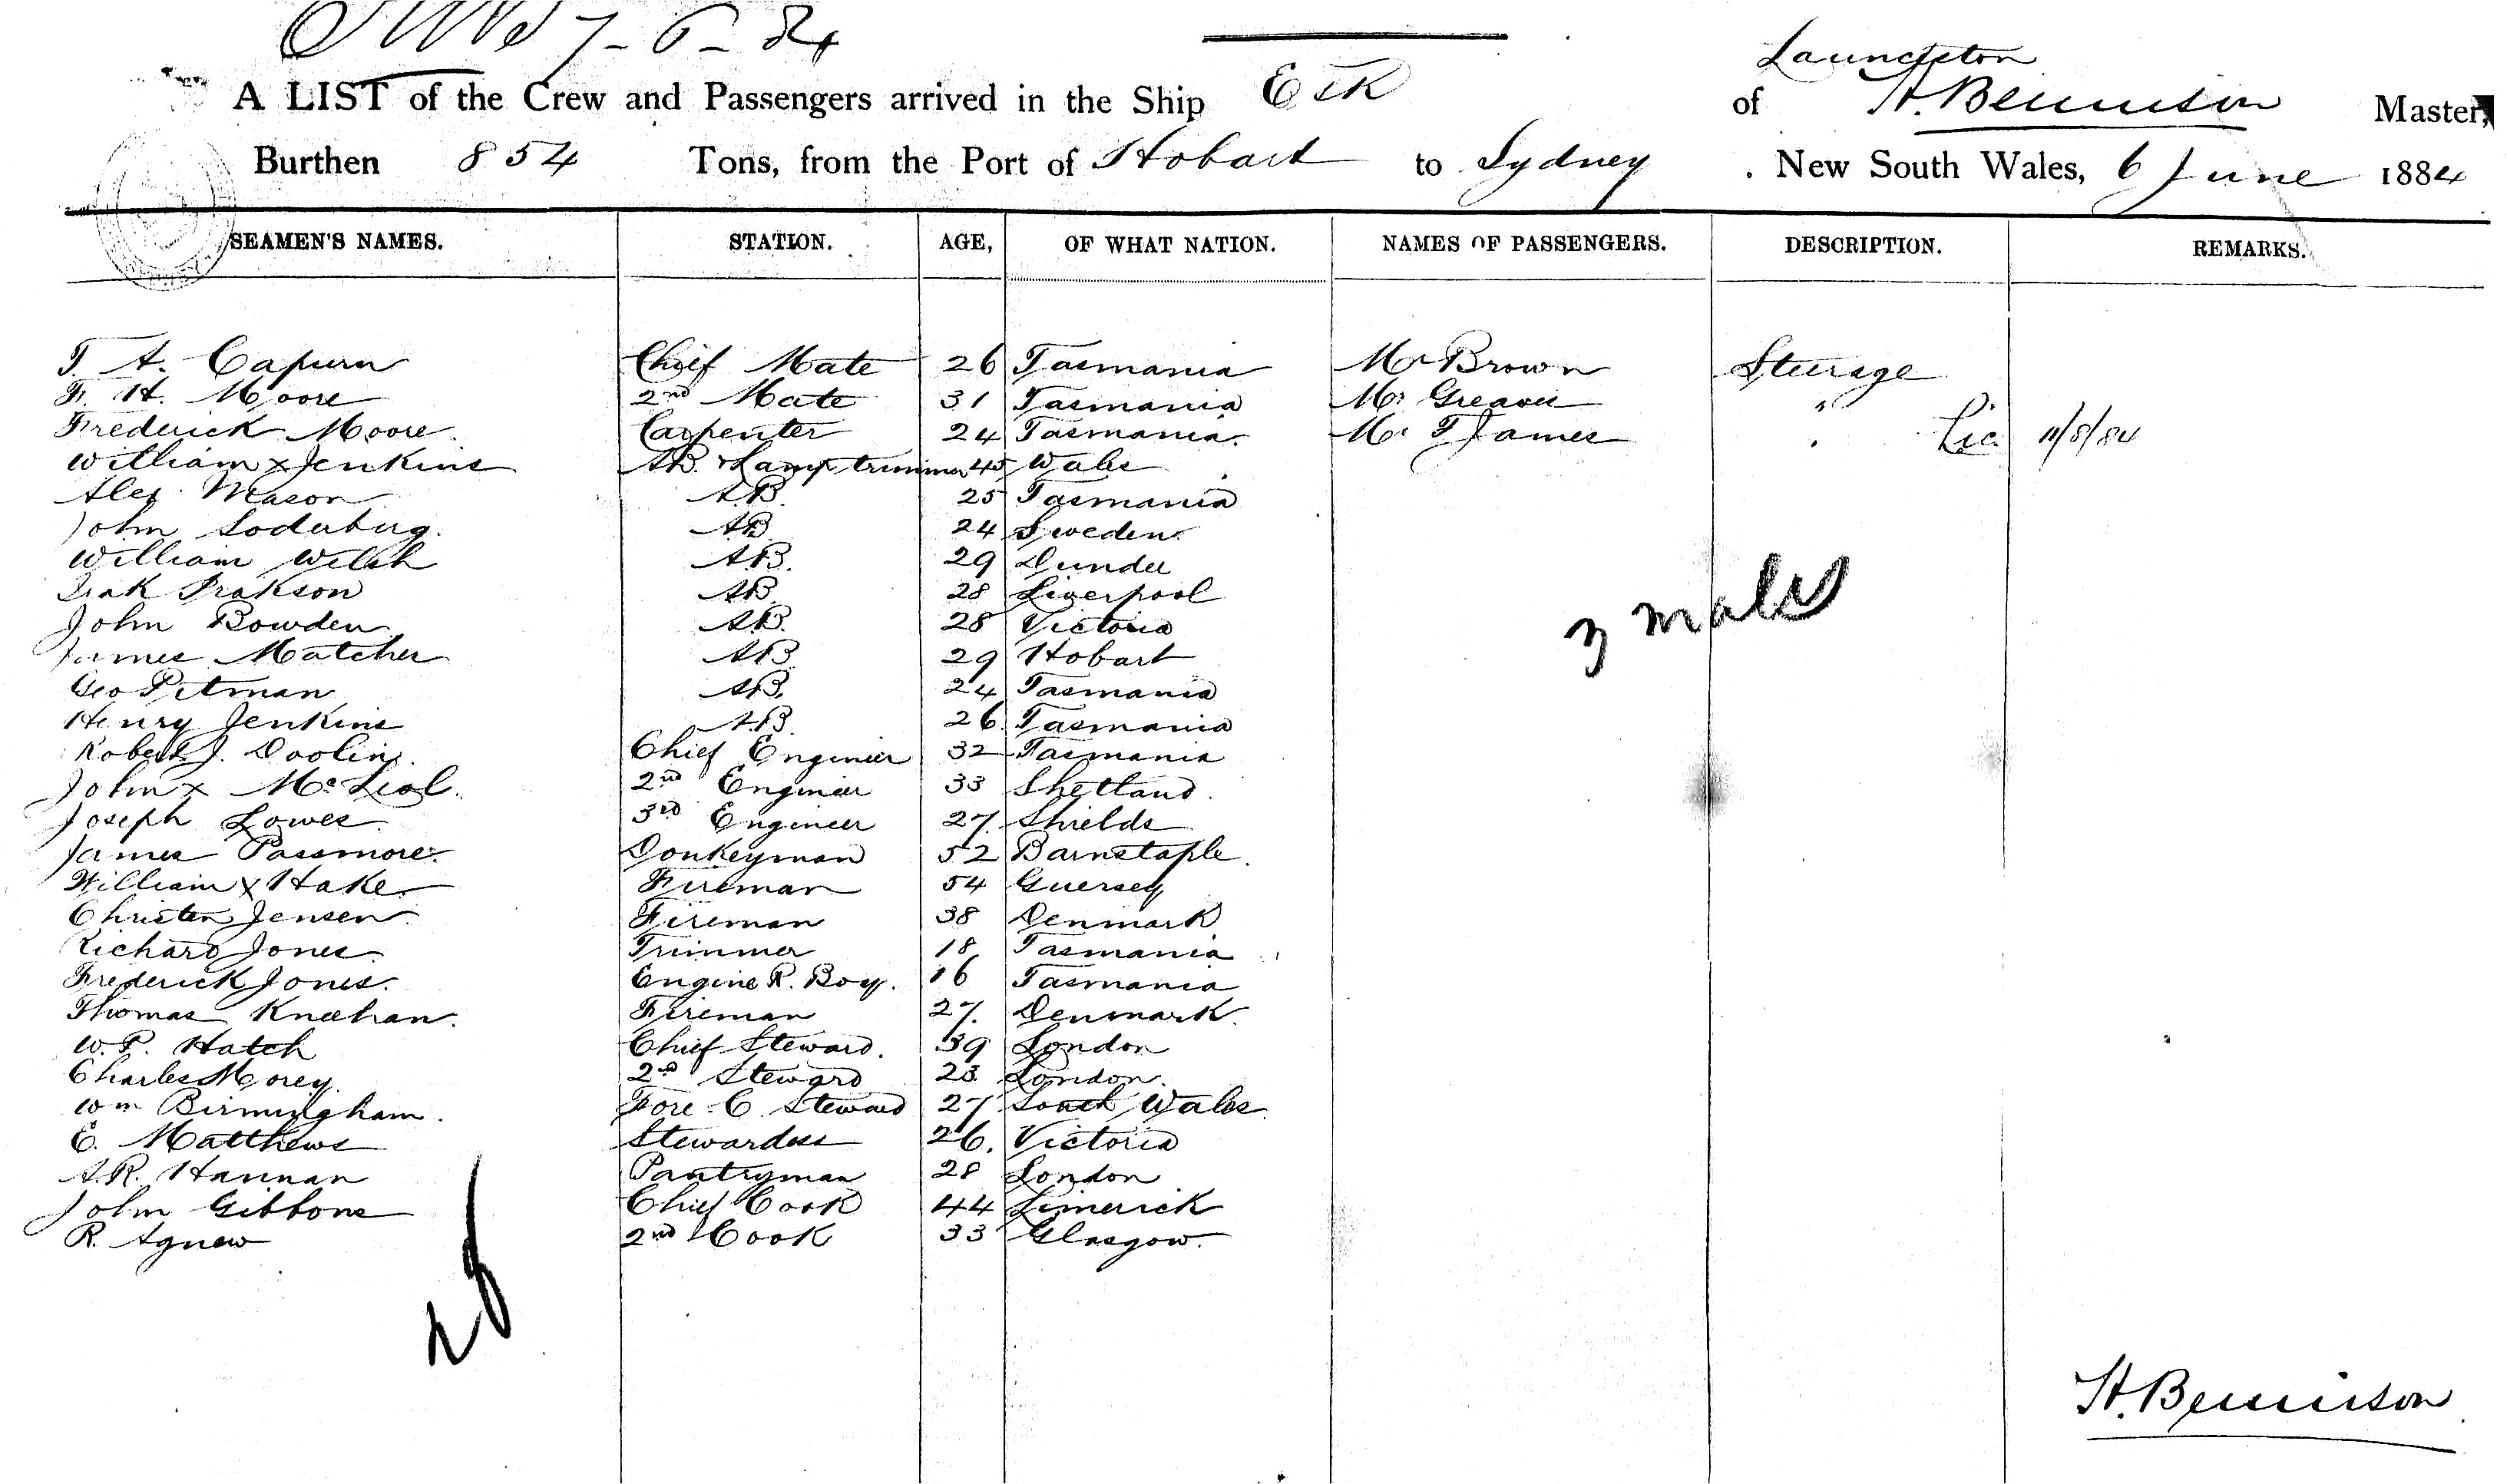 7-6-84
Launceston
A LIST of the Crew and Passengers arrived in the Ship Esk of H. Bennison Master,
Burthen 854 Tons, from the Port of Hobart to Sydney . New South Wales, 6 June 1884
SEAMEN'S NAMES. STATION. AGE, OF WHAT NATION. NAMES OF PASSENGERS. DESCRIPTION. REMARKS.
T. A. Capurn Chief Mate 26 Tasmania Mr Brown Steerage
F. H. Moore 2nd Mate 31 Tasmania Mr Greaves "
Frederick Moore. Carpenter 24 Tasmania. Mr T James " Lic. 11/8/84
William x Jenkins AB. & Lamp trimmer 45 Wales
Alex. Mason A.B. 25 Tasmania
John Soderburg. AB 24 Sweden.
William Welsh A.B. 29 Dundee
AB 28 Liverpool
John Bowden A.B. 28 Victoria
James Matcher AB 29 Hobart
Geo Pitman AB. 24 Tasmania
Henry Jenkins AB 26. Tasmania
Robert J. Doolin. Chief Engineer 32 Tasmania
John x 2nd Engineer 33 Shetland.
Joseph Lowes 3rd Engineer 27. Shields
James Passmore. Donkeyman 52 Barnstaple.
William x Hake. Fireman 54 Guersey
Christen Jensen Fireman 38 Denmark
Richard Jones Trimmer 18 Tasmania
Frederick Jones. Engine R. Boy. 16 Tasmania
Thomas Kneehan. Fireman 27. Denmark.
W. P. Hatch Chief Steward. 39 London
Charles Morey. 2nd Steward 23. London.
Wm Birmingham. Fore-C. Steward 27 South Wales
E. Matthews Stewardess 26. Victoria
A.R. Hannan Pantryman 28 London
John Gibbons Chief Cook 44 Limerick
R. Agnew 2nd Cook 33 Glasgow.
3 males
28
H. Bennison